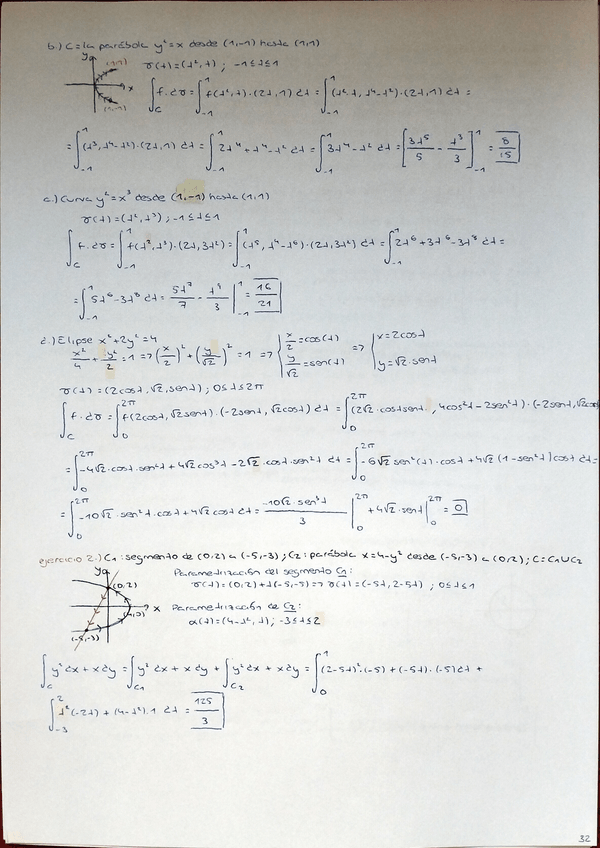 b.) C = la parábola y²=x desde (1,-1) hasta (1,1)
y (1,1) x (1,-1)
σ(t)=(t²,t) ; -1≤t≤1
∫_C f·dσ = ∫_{-1}^{1} f(t²,t)·(2t,1) dt = ∫_{-1}^{1} (t²·t, t⁴-t²)·(2t,1) dt =
= ∫_{-1}^{1} (t³,t⁴-t²)·(2t,1) dt = ∫_{-1}^{1} 2t⁴+t⁴-t² dt = ∫_{-1}^{1} 3t⁴-t² dt = [3t⁵/5 - t³/3]_{-1}^{1} = 8/15
c.) Curva y²=x³ desde (1,-1) hasta (1,1)
σ(t)=(t²,t³) ; -1≤t≤1
∫_C f·dσ = ∫_{-1}^{1} f(t²,t³)·(2t,3t²) dt = ∫_{-1}^{1} (t⁵,t⁴-t⁶)·(2t,3t²) dt = ∫_{-1}^{1} 2t⁶+3t⁶-3t⁸ dt =
= ∫_{-1}^{1} 5t⁶-3t⁸ dt = 5t⁷/7 - t⁹/3 |_{-1}^{1} = 16/21
d.) Elipse x²+2y²=4
x²/4 + y²/2 = 1 => (x/2)² + (y/√2)² = 1 => { x/2 = cos(t) y/√2 = sen(t) => { x=2cost y=√2·sent
σ(t)=(2cost,√2,sent) ; 0≤t≤2π
∫_C f·dσ = ∫_0^{2π} f(2cost,√2sent)·(-2sent,√2cost) dt = ∫_0^{2π} (2√2·costsent, 4cos²t-2sen²t)·(-2sent,√2cost)
= ∫_0^{2π} -4√2·cost·sen²t+4√2cos³t-2√2·cost·sen²t dt = ∫_0^{2π} -6√2 sen²(t)·cost+4√2(1-sen²t)cost dt =
= ∫_0^{2π} -10√2·sen²t·cost+4√2 cost dt = -10√2·sen³t/3 |_0^{2π} + 4√2·sent |_0^{2π} = 0
ejercicio 2.) C₁: segmento de (0,2) a (-5,-3) ; C₂: parábola x=4-y² desde (-5,-3) a (0,2) ; C=C₁∪C₂
y (0,2) (4,0) x (-5,-3)
Parametrización del segmento C₁:
σ(t)=(0,2)+t(-5,-5) => σ(t)=(-5t,2-5t) ; 0≤t≤1
Parametrización de C₂:
α(t)=(4-t²,t) ; -3≤t≤2
∫_C y²dx+xdy = ∫_{C₁} y²dx+xdy + ∫_{C₂} y²dx+xdy = ∫_0^1 (2-5t)²·(-5)+(-5t)·(-5)dt +
∫_{-3}^{2} t²(-2t)+(4-t²)·1 dt = 125/3
32